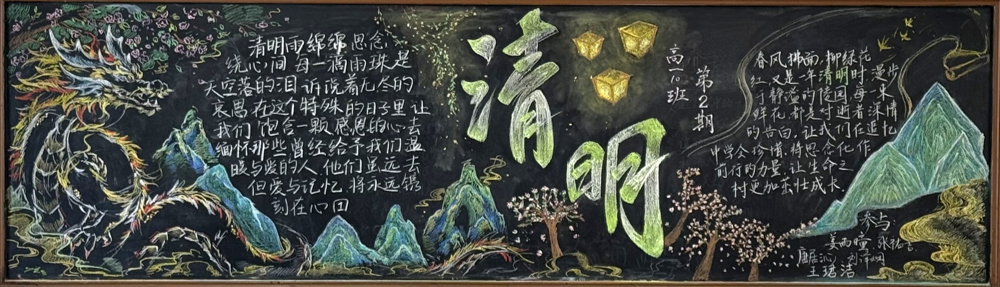 清明雨绵绵思念
绕心间每一滴雨珠是
天空落的泪诉说着无尽的
哀思在这个特殊的日子里让
我们饱含一颗感恩的心去
缅怀那些曾经给予我们温
暖与爱的人他们虽远去
但爱与记忆将永远镌
刻在心田
清明
高一10班
第2期
春风拂面柳绿花
红又是一年清明时漫步
于静谧的陵园母束
鲜花都是对逝者深情
的告白让我们在追忆
中学会珍惜将思念化作
前行的力量让生命之
树更加茁壮成长
参与
姜雨童
唐启沁
王珺洁